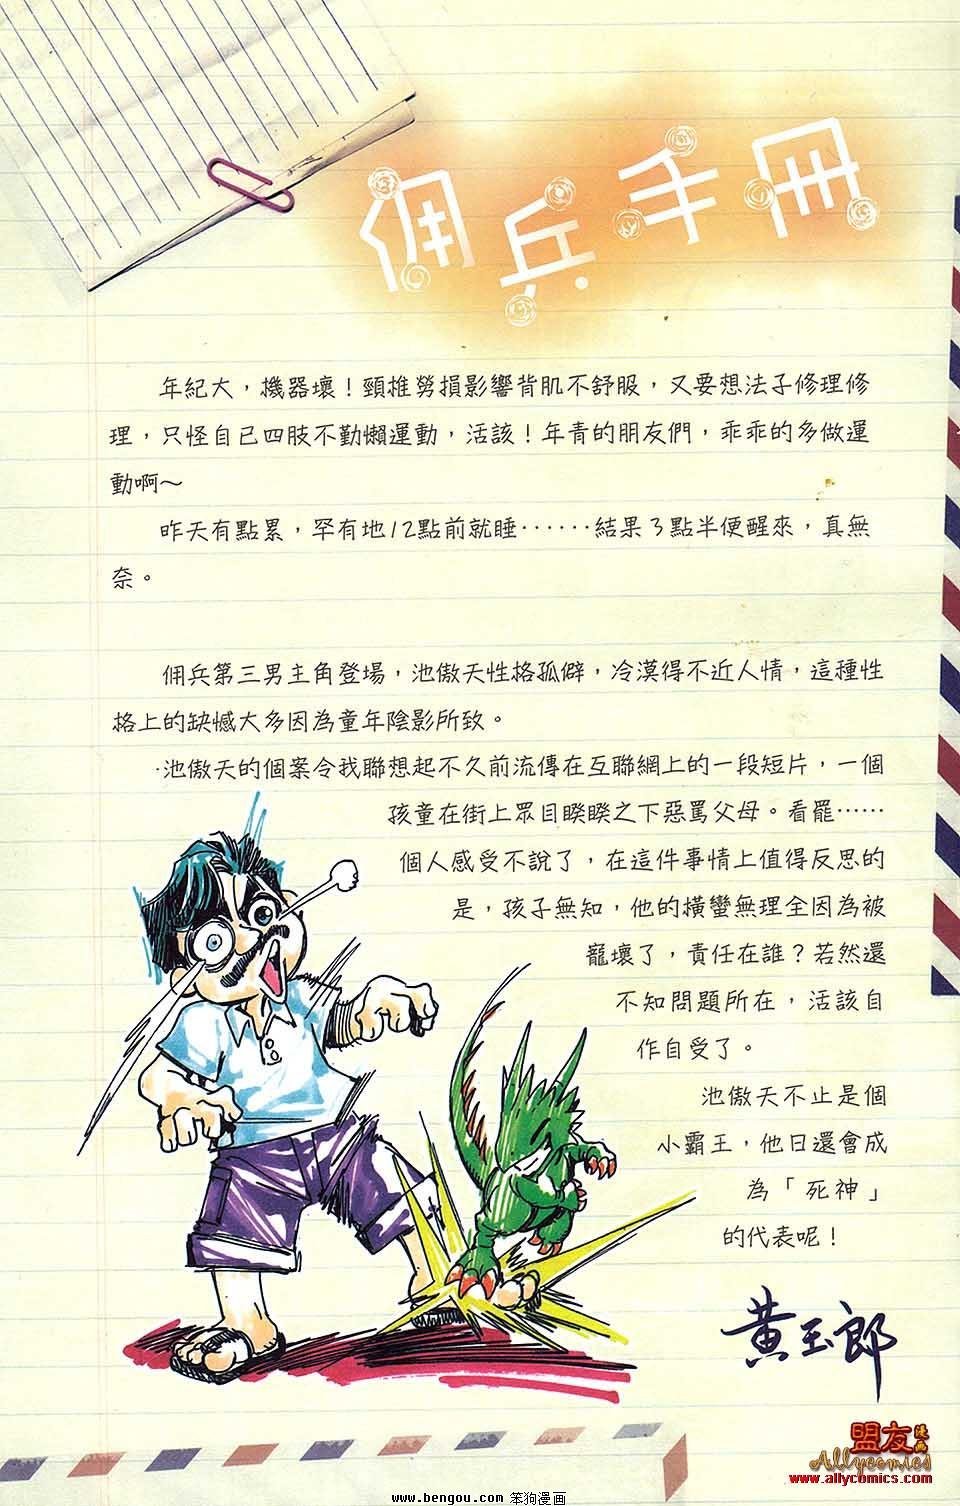 佣兵手冊
年紀大，機器壞！頸推勞損影響背肌不舒服，又要想法子修理修
理，只怪自己四肢不勤懶運動，活該！年青的朋友們，乖乖的多做運
動啊～
昨天有點累，罕有地12點前就睡⋯⋯結果3點半便醒來，真無
奈。
佣兵第三男主角登場，池傲天性格孤僻，冷漠得不近人情，這種性
格上的缺憾大多因為童年陰影所致。
池傲天的個案令我聯想起不久前流傳在互聯網上的一段短片，一個
孩童在街上眾目睽睽之下惡罵父母。看罷⋯⋯
個人感受不說了，在這件事情上值得反思的
是，孩子無知，他的橫蠻無理全因為被
寵壞了，責任在誰？若然還
不知問題所在，活該自
作自受了。
池傲天不止是個
小霸王，他日還會成
為「死神」
的代表呢！
黃玉郎
盟友漫画
Allycomics
www.allycomics.com
www.bengou.com 笨狗漫画